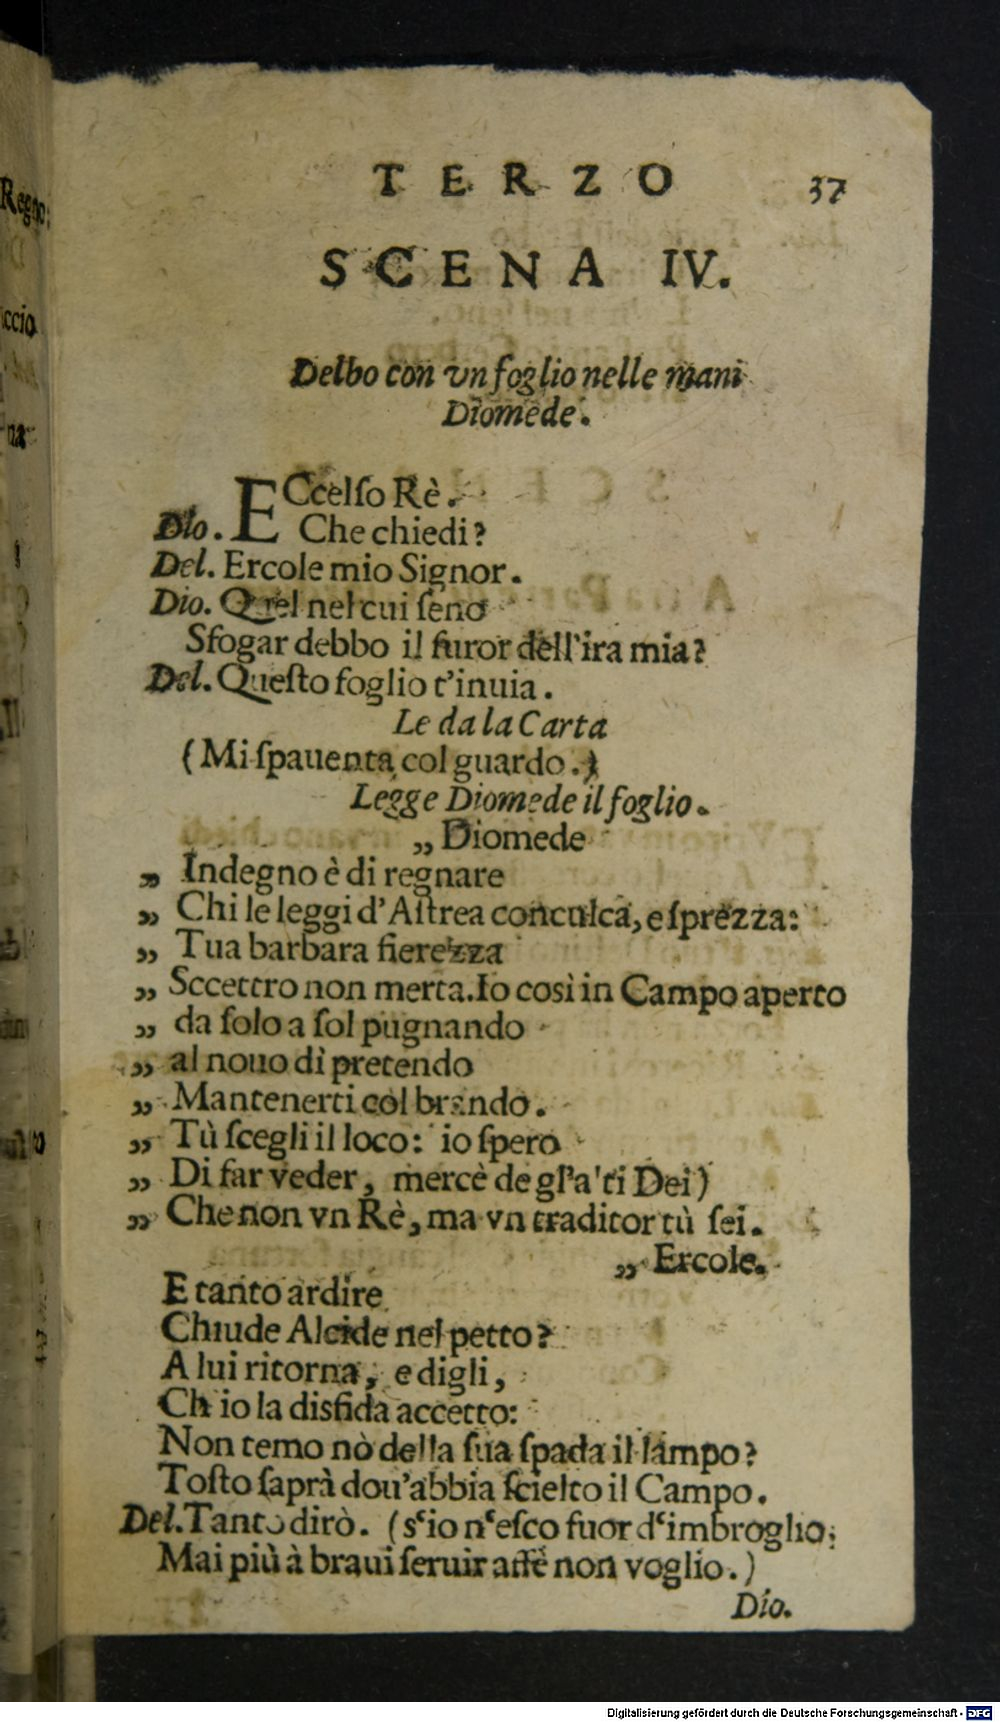 TERZO 37
SCENA IV.
Delbo con vn foglio nelle mani
Diomede.
ECcelſo Rè.
Dio. Che chiedi?
Del. Ercole mio Signor.
Dio. Quel nel cui ſeno
Sfogar debbo il furor dell'ira mia?
Del. Queſto foglio t'inuia.
Le da la Carta
(Mi ſpauenta col guardo.)
Legge Diomede il foglio.
„ Diomede
„ Indegno è di regnare
„ Chi le leggi d'Aſtrea conculca, e ſprezza:
„ Tua barbara fierezza
„ Sccettro non merta. Io così in Campo aperto
„ da ſolo a ſol pugnando
„ al nouo dì pretendo
„ Mantenerti col brando.
„ Tù ſcegli il loco: io ſpero
„ Di far veder, mercè de gl'a'ti Dei)
„ Che non vn Rè, ma vn traditor tù ſei.
„ Ercole.
E tanto ardire
Chiude Alcide nel petto?
A lui ritorna, e digli,
Ch io la disfida accetto:
Non temo nò della ſua ſpada il lampo?
Toſto ſaprà dou'abbia ſcielto il Campo.
Del. Tanto dirò. (s'io n'eſco fuor d'imbroglio;
Mai più à braui ſeruir affè non voglio.)
Dio.
Regno:
ccio
na
Digitalisierung gefördert durch die Deutsche Forschungsgemeinschaft - DFG